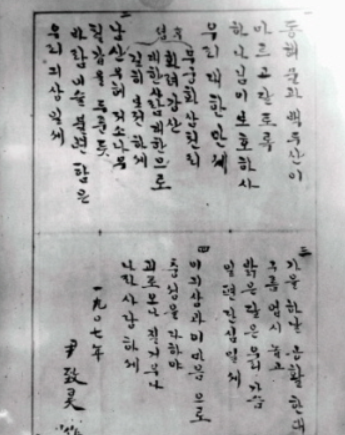 동해물과 백두산이
마르고 달토록
하나님이 보호하사
우리 대한 만세
무궁화 삼천리
화려강산
대한사람 대한으로
길히 보전하세
二
남산우헤 저소나무
철갑을 두른듯
바람이슬 불변함은
우리긔상일세
三
가을하날 공활한대
구름업시 놉고
밝은달은 우리가슴
일편단심일세
四
이긔상과 이마음으로
충성을 다하야
괴로오나 질거우나
나라사랑하세
一九〇七年
尹致昊